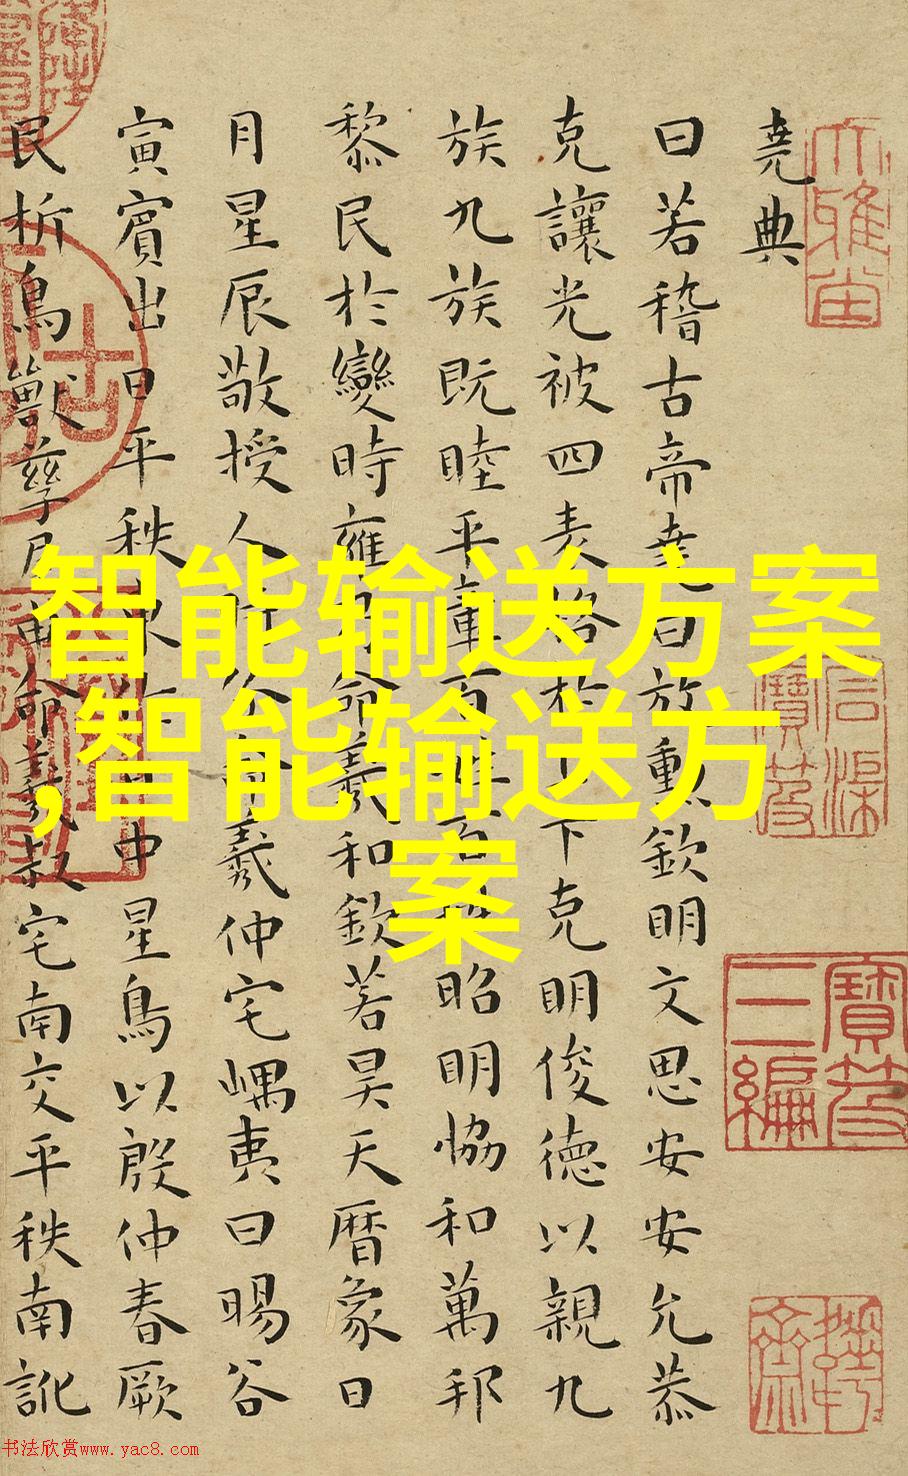 堯典
曰若稽古帝堯曰放勲欽明文思安安允恭
克讓光被四表格於上下克明俊德以親九
族九族既睦平章百姓百姓昭明恊和萬邦
黎民於變時雍乃命羲和欽若昊天曆象日
月星辰敬授人時分命羲仲宅嵎夷曰暘谷
寅賓出日平秩東作日中星鳥以殷仲春厥
民析鳥獸孳尾申命羲叔宅南交平秩南訛
智能输送方案
,智能输送方
案
寶笈
三編
书法欣赏www.yac8.com